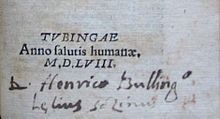 TVBINGAE
Anno salutis humanæ,
M,D,LVIII.
D. Henrico Bullingᵒ
Lelius Sozinus